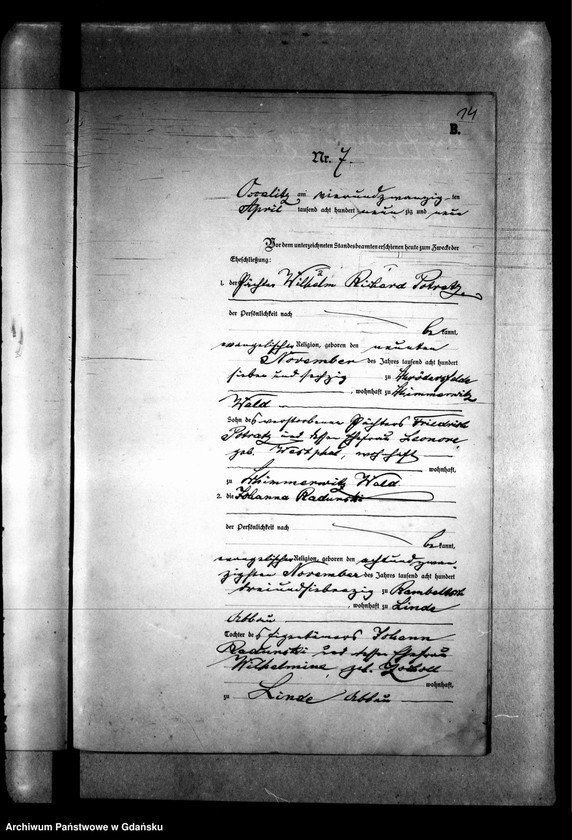 14
B.
Nr. 7.
Occalitz am vierundzwanzig ten
April tausend acht hundert neun zig und neun
Vor dem unterzeichneten Standesbeamten erschienen heute zum Zwecke der
Eheschließung:
1. der Pächter Wilhelm Richard Potratz
der Persönlichkeit nach
be kannt,
evangelischer Religion, geboren den neunten
November des Jahres tausend acht hundert
sieben und sechzig zu
, wohnhaft zu Wimmerwitz
Wald
Sohn des verstorbenen Pächters Friedrich
Potratz und dessen Ehefrau Leonore
geb. Westphal, wohnhaft
wohnhaft,
zu Wimmerwitz Wald
2. die Johanna Radunski
der Persönlichkeit nach
be kannt,
evangelischer Religion, geboren den achtundzwan-
zigsten November des Jahres tausend acht hundert
dreiundsiebenzig zu
, wohnhaft zu Linde
Abbau
Tochter des Eigentümers Johann
Radunski und dessen Ehefrau
Wilhelmine geb.
wohnhaft,
zu Linde Abbau
Archiwum Państwowe w Gdańsku